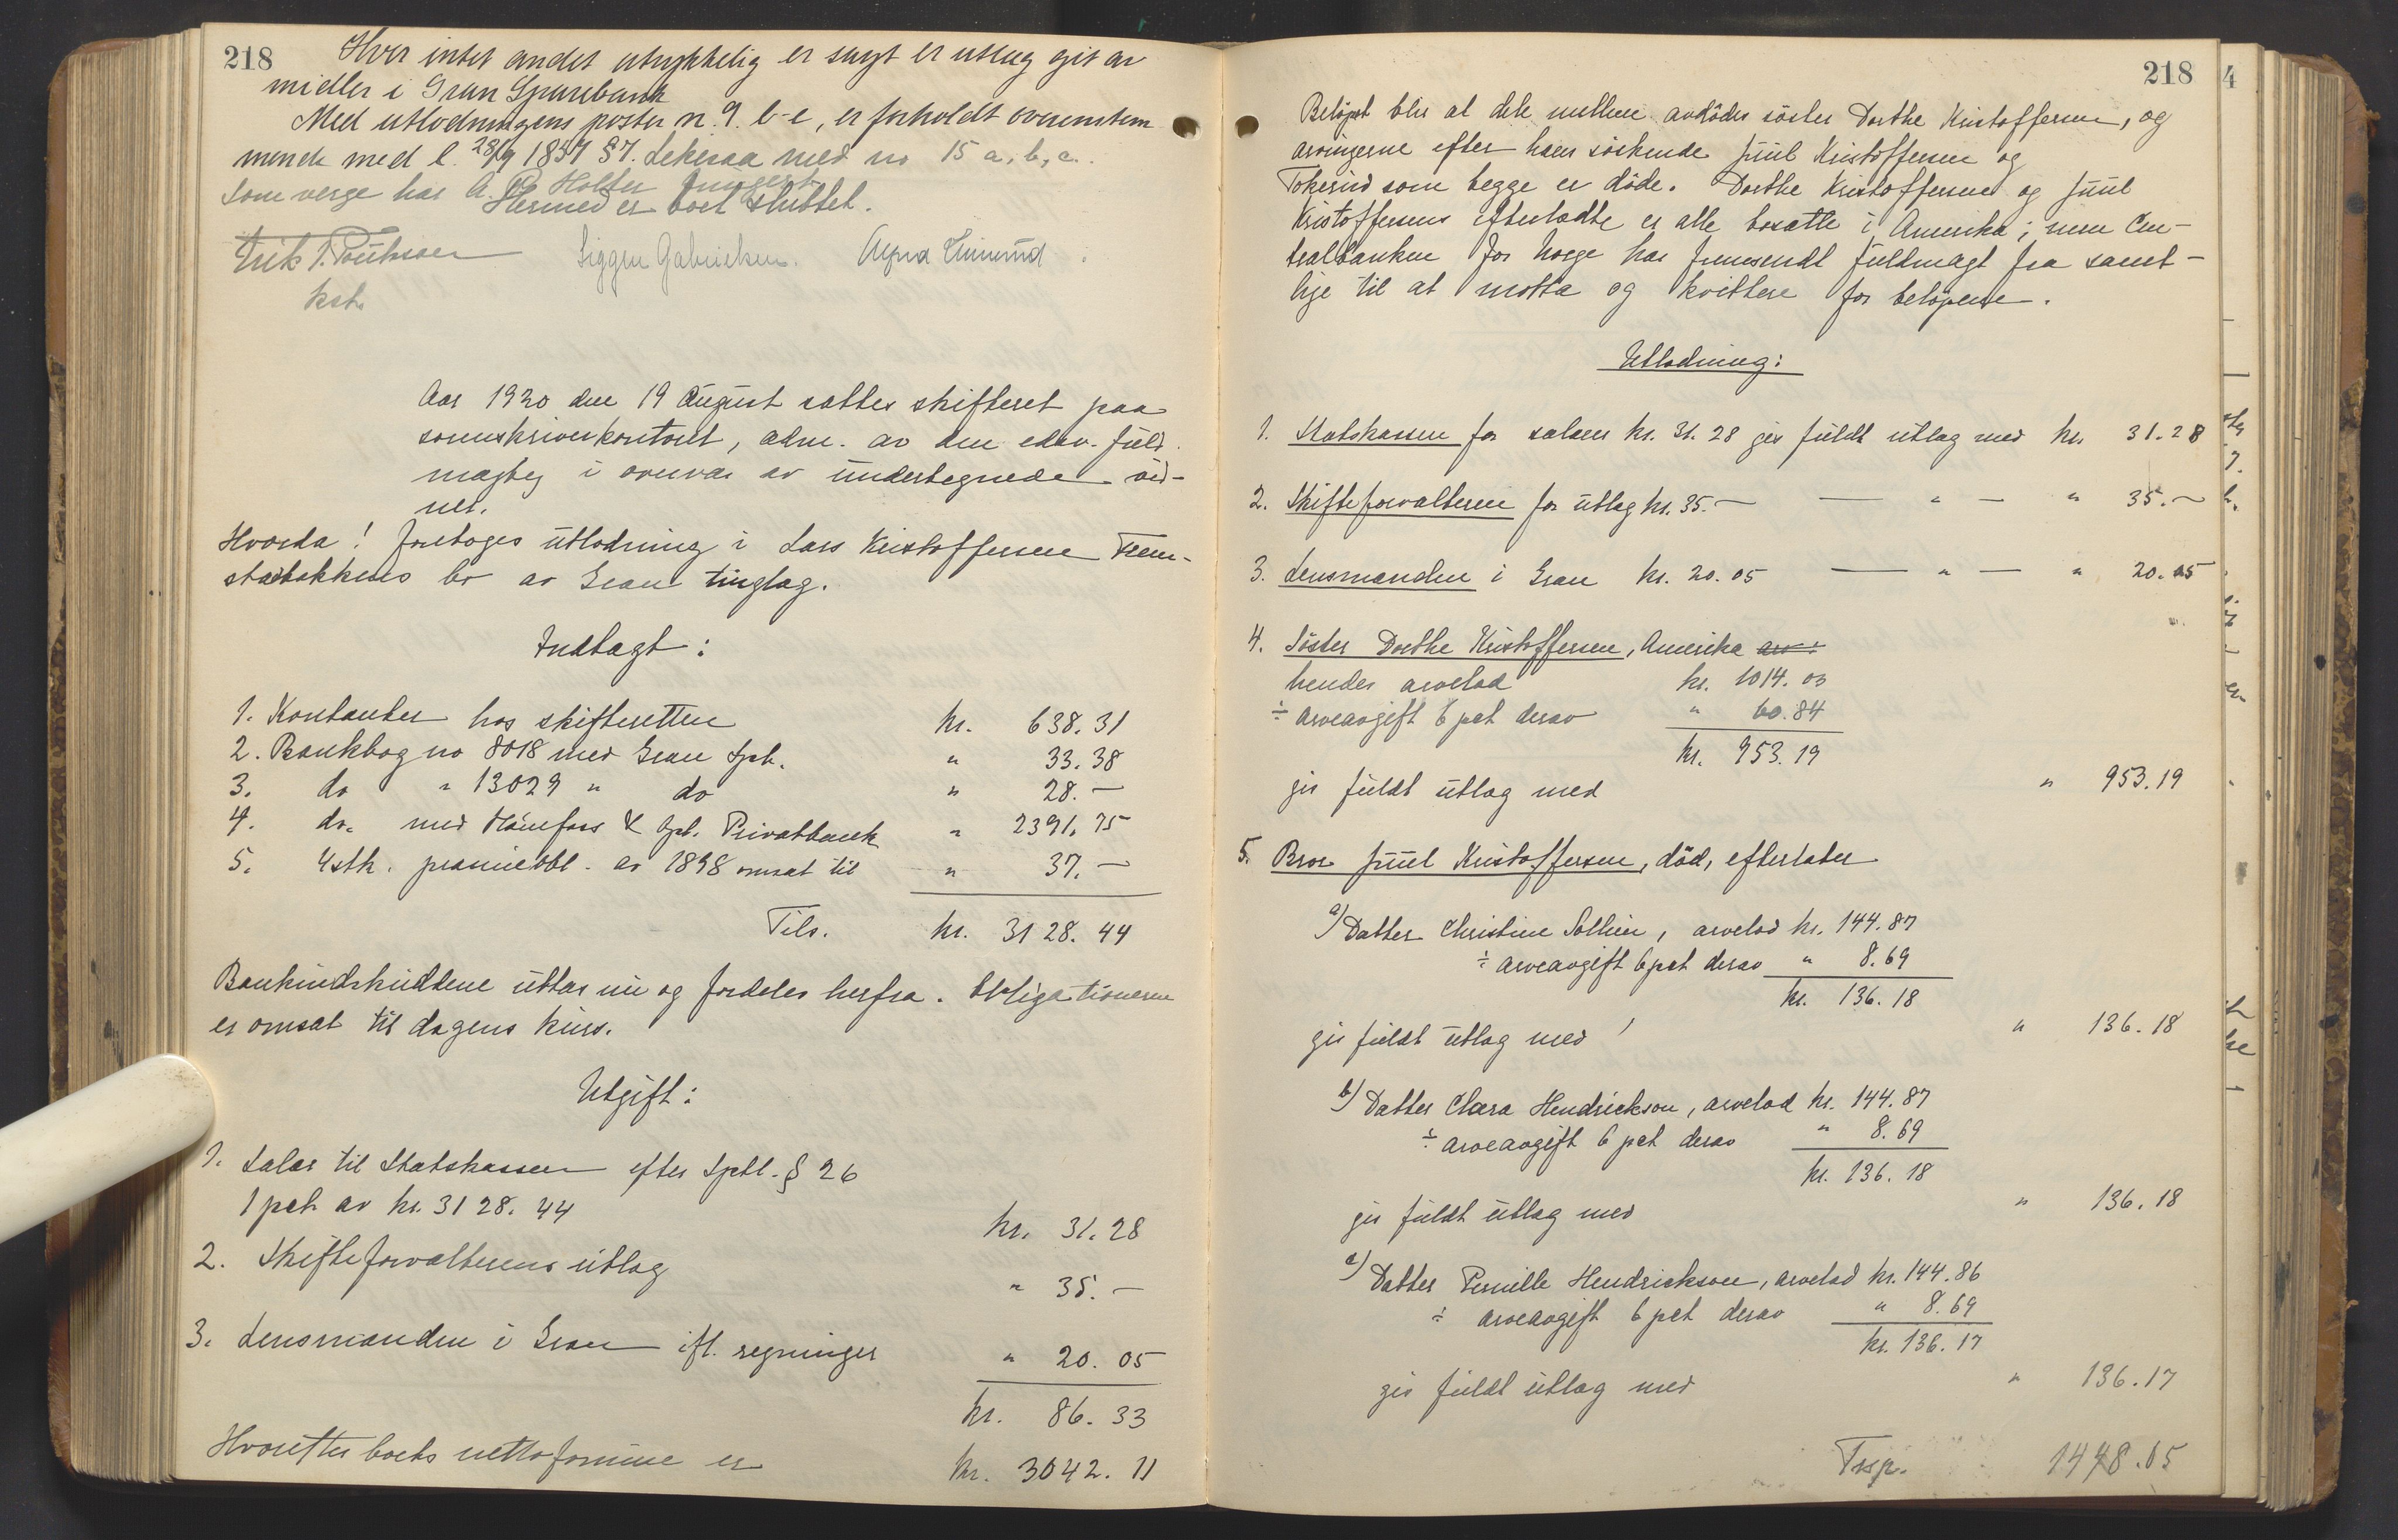 218
Hvor intet andet utrykkelig er sagt er utlæg git av
midler i Gran Sparebank
Med utlodningens poster n. 9. b-e, er forholdt overenstem
mende med l. 28/9 1857 §7. Likesaa med no 15 a, b, c.
Som verge har A. Holter fungert.
Hermed er boet sluttet.
Erik T. Poulsson
kst.
Siggen Gabrielsen.
Aar 1920 den 19 august sattes skifteret paa
sorenskriverkontoret, adm. av den edsv. fuld
mægtig i overvær av undertegnede vid-
ner.
Hvorda! foretoges utlodning i Lars Kristoffersen Frem-
stadbakkens bo av Gran tinglag.
Indtægt:
1. Kontanter hos skifteretten kr. 638.31
2. Bankbog no 8018 med Gran Spb. " 33.38
3. do " 13029 " do " 28.—
4. do. med Hönefoss & Opl. Privatbank " 2391.75
5. 4 stk. præmieobl. av 1898 omsat til " 37.—
Tils. kr. 3128.44
Bankindskuddene uttas nu og fordeles herfra. Obligationerne
er omsat til dagens kurs.
Utgift:
1. Salær til Statskassen efter Sptl. § 26
1 pct av kr. 3128.44
kr. 31.28
2. Skifteforvalterens utlæg
" 35.—
3. Lensmanden i Gran ifl. regninger
" 20.05
kr. 86.33
Hvorefter boets nettoformue er kr. 3042.11
218
Belöpet blir at dele mellem avdödes söster Dorthe Kristoffersen, og
arvingerne efter hans söskende Juul Kristoffersen og
Tokerud som begge er döde. Dorthe Kristoffersen og Juul
Kristoffersens efterladte er alle bosatte i Amerika; men Cen-
tralbanken for Norge har fremsendt fuldmagt fra samt-
lige til at motta og kvittere for belöpene.
Utlodning:
1. Statskassen for salær kr. 31.28 gis fuldt utlæg med kr. 31.28
2. Skifteforvalteren for utlæg kr. 35.— — " — " 35.—
3. Lensmanden i Gran kr. 20.05 — " — " 20.05
4. Söster Dorthe Kristoffersen, Amerika arv:
hendes arvelod kr. 1014.03
÷ arveavgift 6 pct derav " 60.84
kr. 953.19
gis fuldt utlæg med " 953.19
5. Bror Juul Kristoffersen, död, efterlater
a) Datter Christine Sollien, arvelod kr. 144.87
÷ arveavgift 6 pct derav " 8.69
kr. 136.18
gis fuldt utlæg med " 136.18
b) Datter Clara Hendrickson, arvelod kr. 144.87
÷ arveavgift 6 pct derav " 8.69
kr. 136.18
gis fuldt utlæg med " 136.18
c) Datter Pernille Hendrickson, arvelod kr. 144.86
÷ arveavgift 6 pct derav " 8.69
kr. 136.17
gis fuldt utlæg med " 136.17
Trsp. 1448.05
4